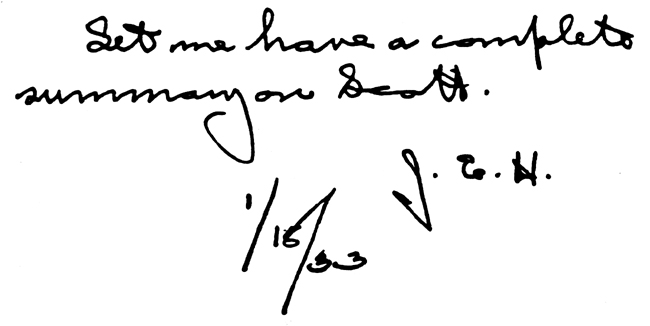 Let me have a complete
summary on Scott.
J. E. H.
1/16/33